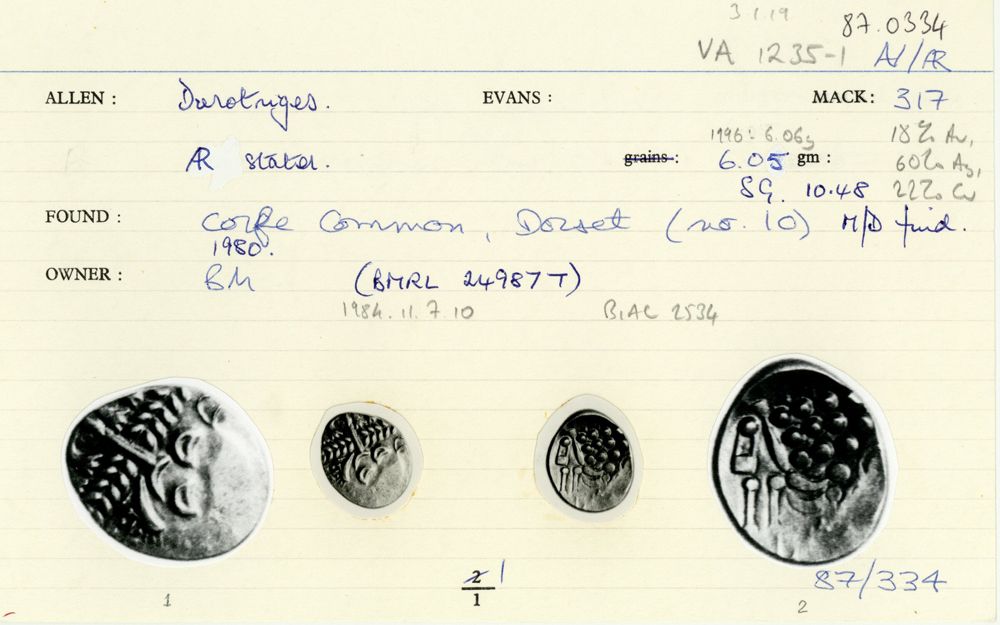 3.1.19 87.0334
VA 1235-1 AV/AR
ALLEN : Durotriges. EVANS : MACK: 317
AR stater. grains : 1996: 6.06g 6.05 gm : 18% Au, 60% Ag, 22% Cu
SG. 10.48
FOUND : Corfe Common, Dorset (no. 10) M/D find.
1980.
OWNER : BM (BMRL 24987T)
1984.11.7.10 BIAC 2534
2 1
1
87/334
1 2